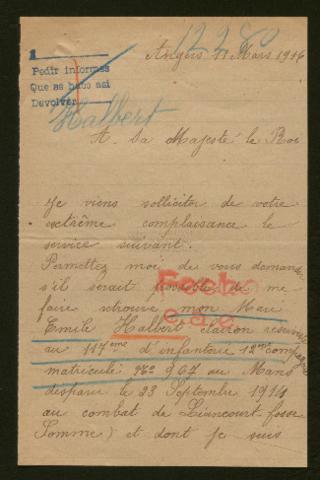 12280
Angers 11 Mars 1916
1
Pedir informes
Que as
Devolver
Halbert
A. Sa Majesté le Roi
Je viens solliciter de votre
extrême complaisance le
service suivant.
Permettez moi de vous demander
s'il serait possible de me
faire retrouver mon Mari
Emile Halbert clairon réserviste
au 117ème d'infanterie 12me compagnie
matricule No 967 au Mans
disparu le 23 Septembre 1914
au combat de Liancourt-fosse
Somme) et dont je suis